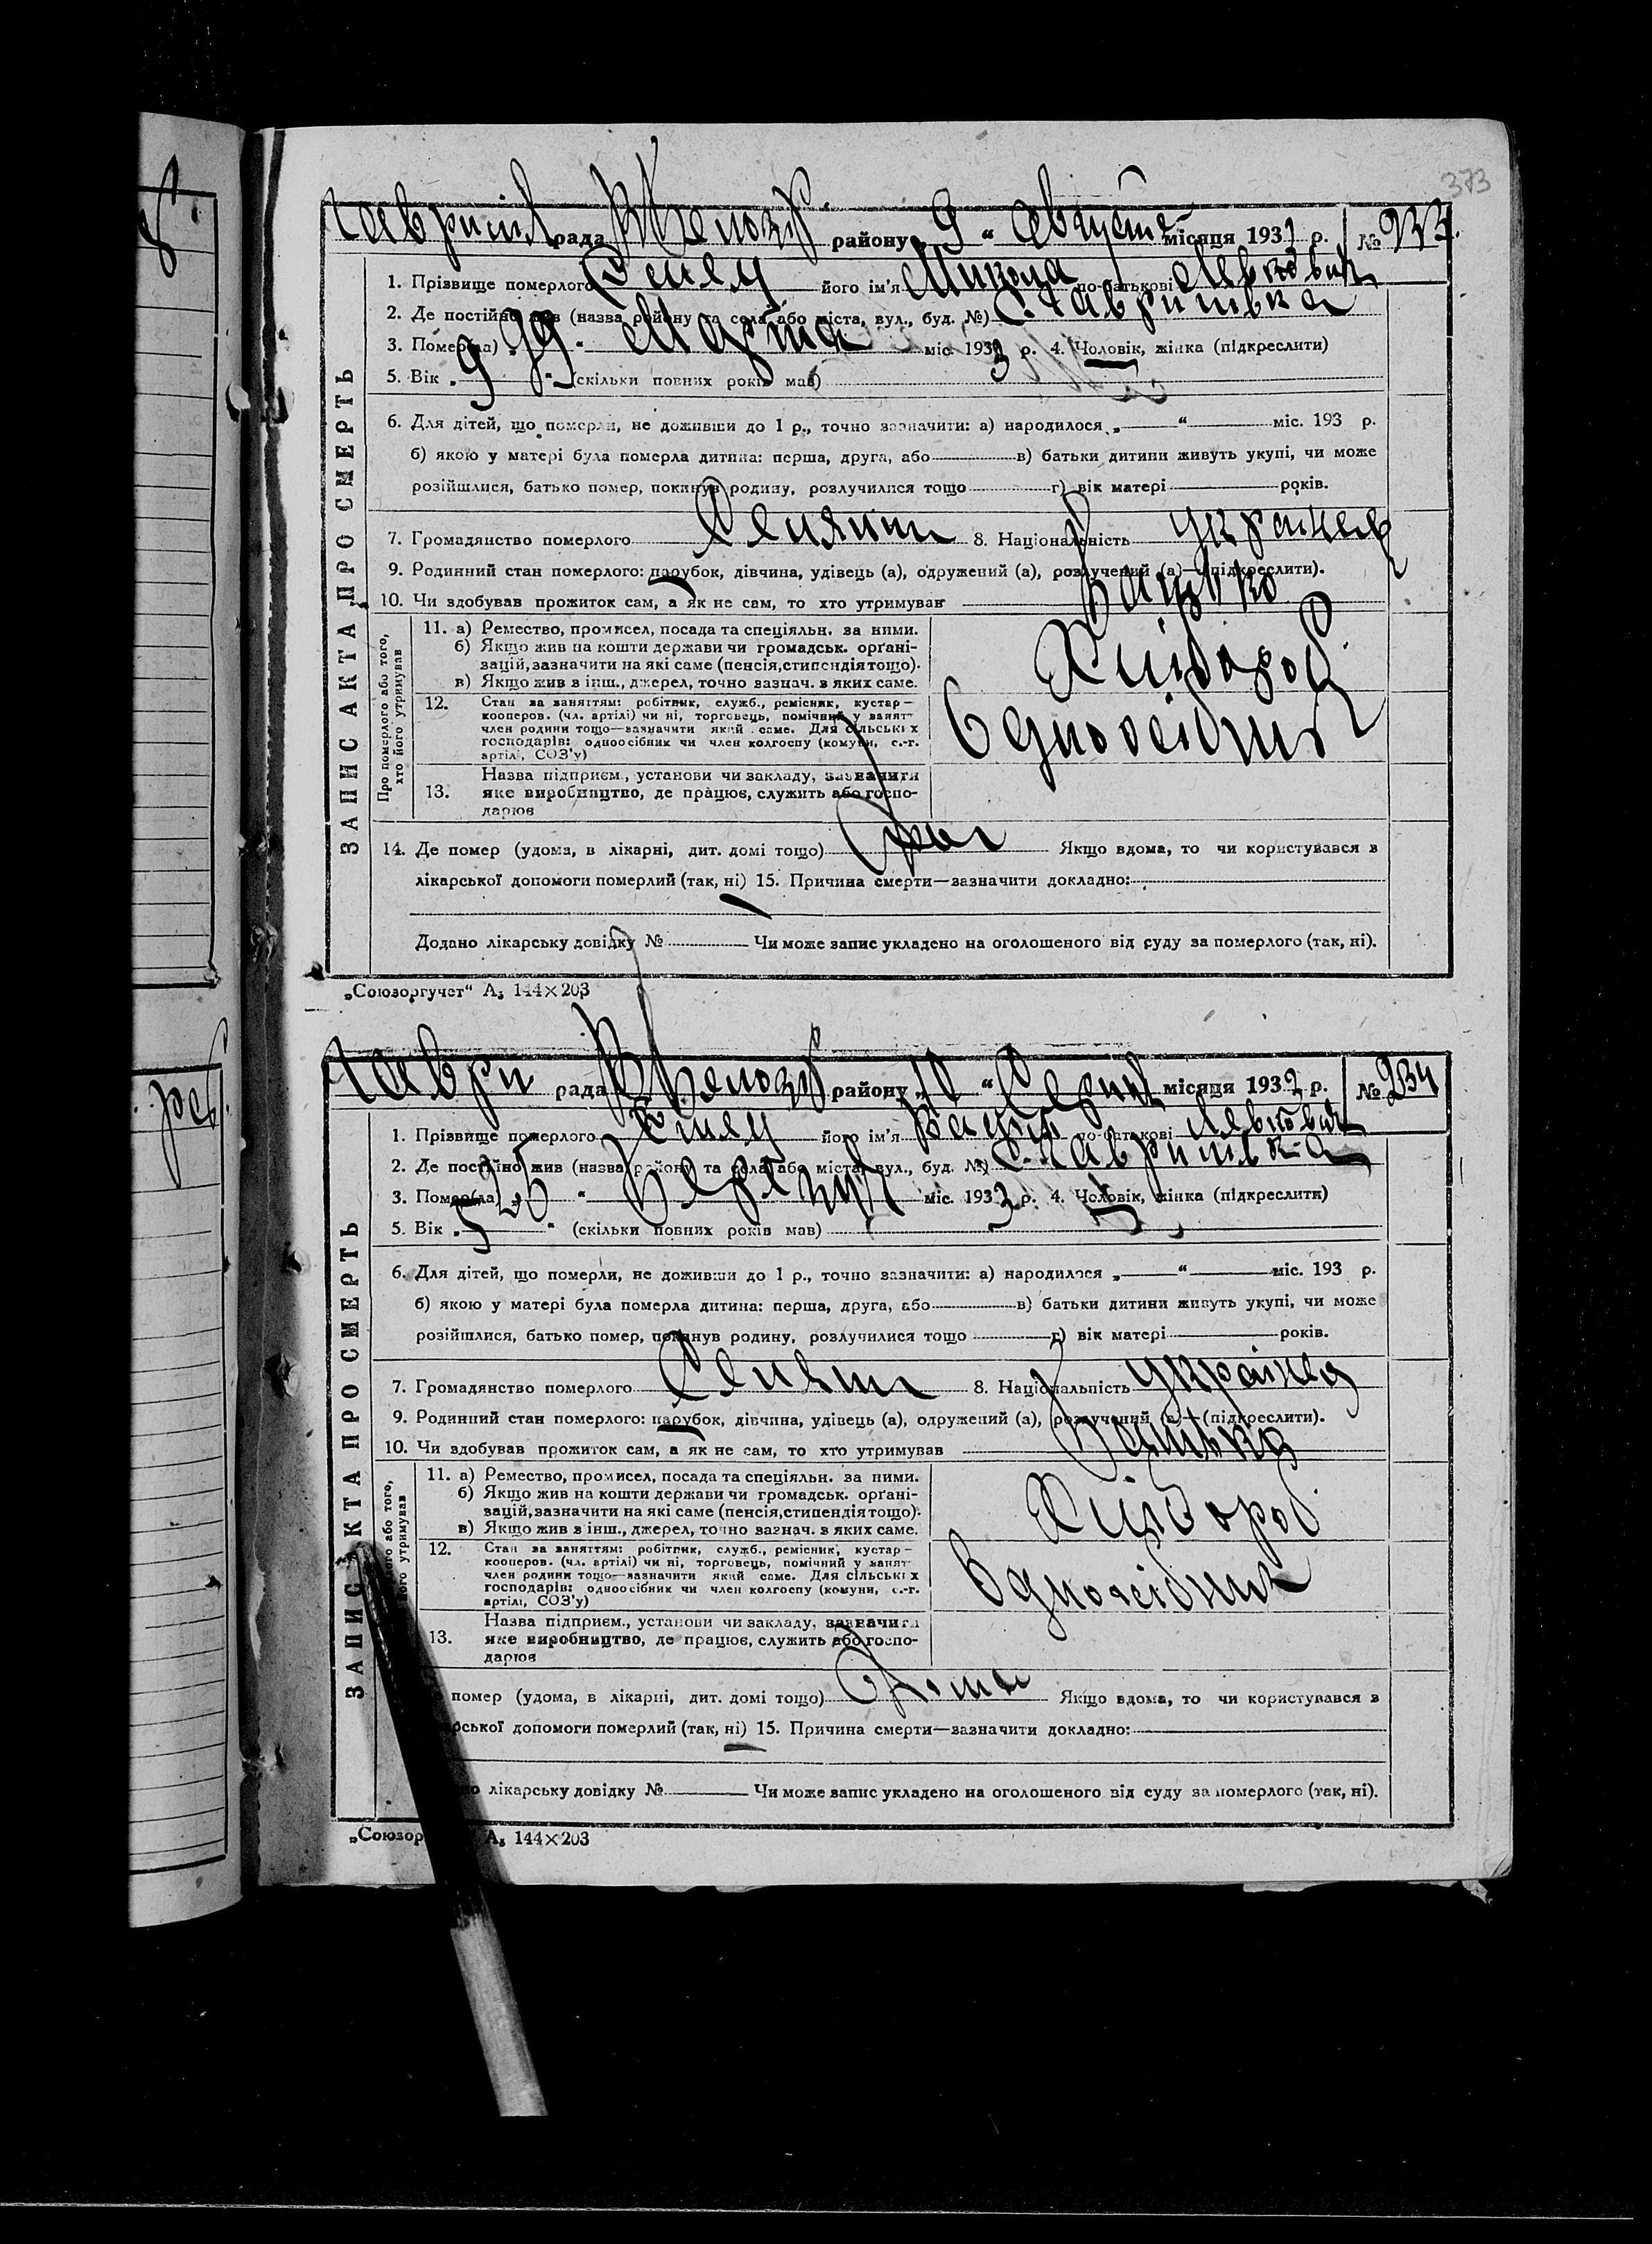 373
рада району 9 " Августа місяця 1933 р. № 233.
1. Прізвище померлого його ім'я Микола по-батькові Левкович
2. Де постійно жив (назва району та села або міста, вул., буд. №) с. Гавришівка
3. Помер(ла) " " Марта міс. 1933 р. 4. Чоловік, жінка (підкреслити)
5. Вік „ 9 " (скільки повних років мав)
6. Для дітей, що померли, не доживши до 1 р., точно зазначити: а) народилося „ " міс. 193 р.
б) якою у матері була померла дитина: перша, друга, або в) батьки дитини живуть укупі, чи може
розійшлися, батько помер, покинув родину, розлучилися тощо г) вік матері років.
7. Громадянство померлого Селянин 8. Національність українец
9. Родинний стан померлого: парубок, дівчина, удівець (а), одружений (а), розлучений (а)—(підкреслити).
10. Чи здобував прожиток сам, а як не сам, то хто утримував Батько
ЗАПИС АКТА ПРО СМЕРТЬ
Про померлого або того,
хто його утримував
11. а) Ремество, промисел, посада та спеціяльн. за ними.
б) Якщо жив на кошти держави чи громадськ. орґані-
зацій, зазначити на які саме (пенсія, стипендія тощо).
в) Якщо жив з інш., джерел, точно зазнач. з яких саме.
Хлібороб
12. Стан за заняттям: робітник, служб., ремісник, кустар—
кооперов. (чл. артілі) чи ні, торговець, помічний у занят-
член родини тощо—зазначити який саме. Для сільських
господарів: одноосібник чи член колгоспу (комуни, с.-г.
артілі, СОЗ'у)
Одноосібник
13. Назва підприєм., установи чи закладу, зазначити
яке виробництво, де працює, служить або госпо-
дарює
14. Де помер (удома, в лікарні, дит. домі тощо) Якщо вдома, то чи користувався в
лікарської допомоги померлий (так, ні) 15. Причина смерти—зазначити докладно:
Додано лікарську довідку № Чи може запис укладено на оголошеного від суду за померлого (так, ні).
„Союзоргучет" А₅ 144×203
Гаври рада району 10 " місяця 1933 р. № 234
1. Прізвище померлого його ім'я по-батькові Левкович
2. Де постійно жив (назва району та села або міста, вул., буд. №) с. Гавришівка
3. Помер(ла) „ 25 " Березня міс. 1933 р. 4. Чоловік, жінка (підкреслити)
5. Вік „ 5 " (скільки повних років мав)
6. Для дітей, що померли, не доживши до 1 р., точно зазначити: а) народилося „ " міс. 193 р.
б) якою у матері була померла дитина: перша, друга, або в) батьки дитини живуть укупі, чи може
розійшлися, батько помер, покинув родину, розлучилися тощо г) вік матері років.
7. Громадянство померлого Селянин 8. Національність
9. Родинний стан померлого: парубок, дівчина, удівець (а), одружений (а), розлучений (а)—(підкреслити).
10. Чи здобував прожиток сам, а як не сам, то хто утримував
ЗАПИС АКТА ПРО СМЕРТЬ
або того,
утримував
11. а) Ремество, промисел, посада та спеціяльн. за ними.
б) Якщо жив на кошти держави чи громадськ. орґані-
зацій, зазначити на які саме (пенсія, стипендія тощо).
в) Якщо жив з інш., джерел, точно зазнач. з яких саме.
Хлібороб
12. Стан за заняттям: робітник, служб., ремісник, кустар—
кооперов. (чл. артілі) чи ні, торговець, помічний у занят-
член родини тощо—зазначити який саме. Для сільських
господарів: одноосібник чи член колгоспу (комуни, с.-г.
артілі, СОЗ'у)
Одноосібник
13. Назва підприєм., установи чи закладу, зазначити
яке виробництво, де працює, служить або госпо-
дарює
помер (удома, в лікарні, дит. домі тощо) Дома Якщо вдома, то чи користувався в
допомоги померлий (так, ні) 15. Причина смерти—зазначити докладно:
лікарську довідку № Чи може запис укладено на оголошеного від суду за померлого (так, ні).
„Союзор А₅ 144×203